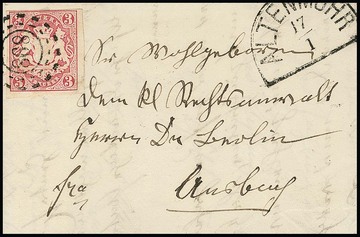 3 3
888
3 3
ALTENMUHR
17
1
Sr Wohlgeboren
dem kl Rechtsanwalt
Herrn Dr Berlin
fro
Ansbach